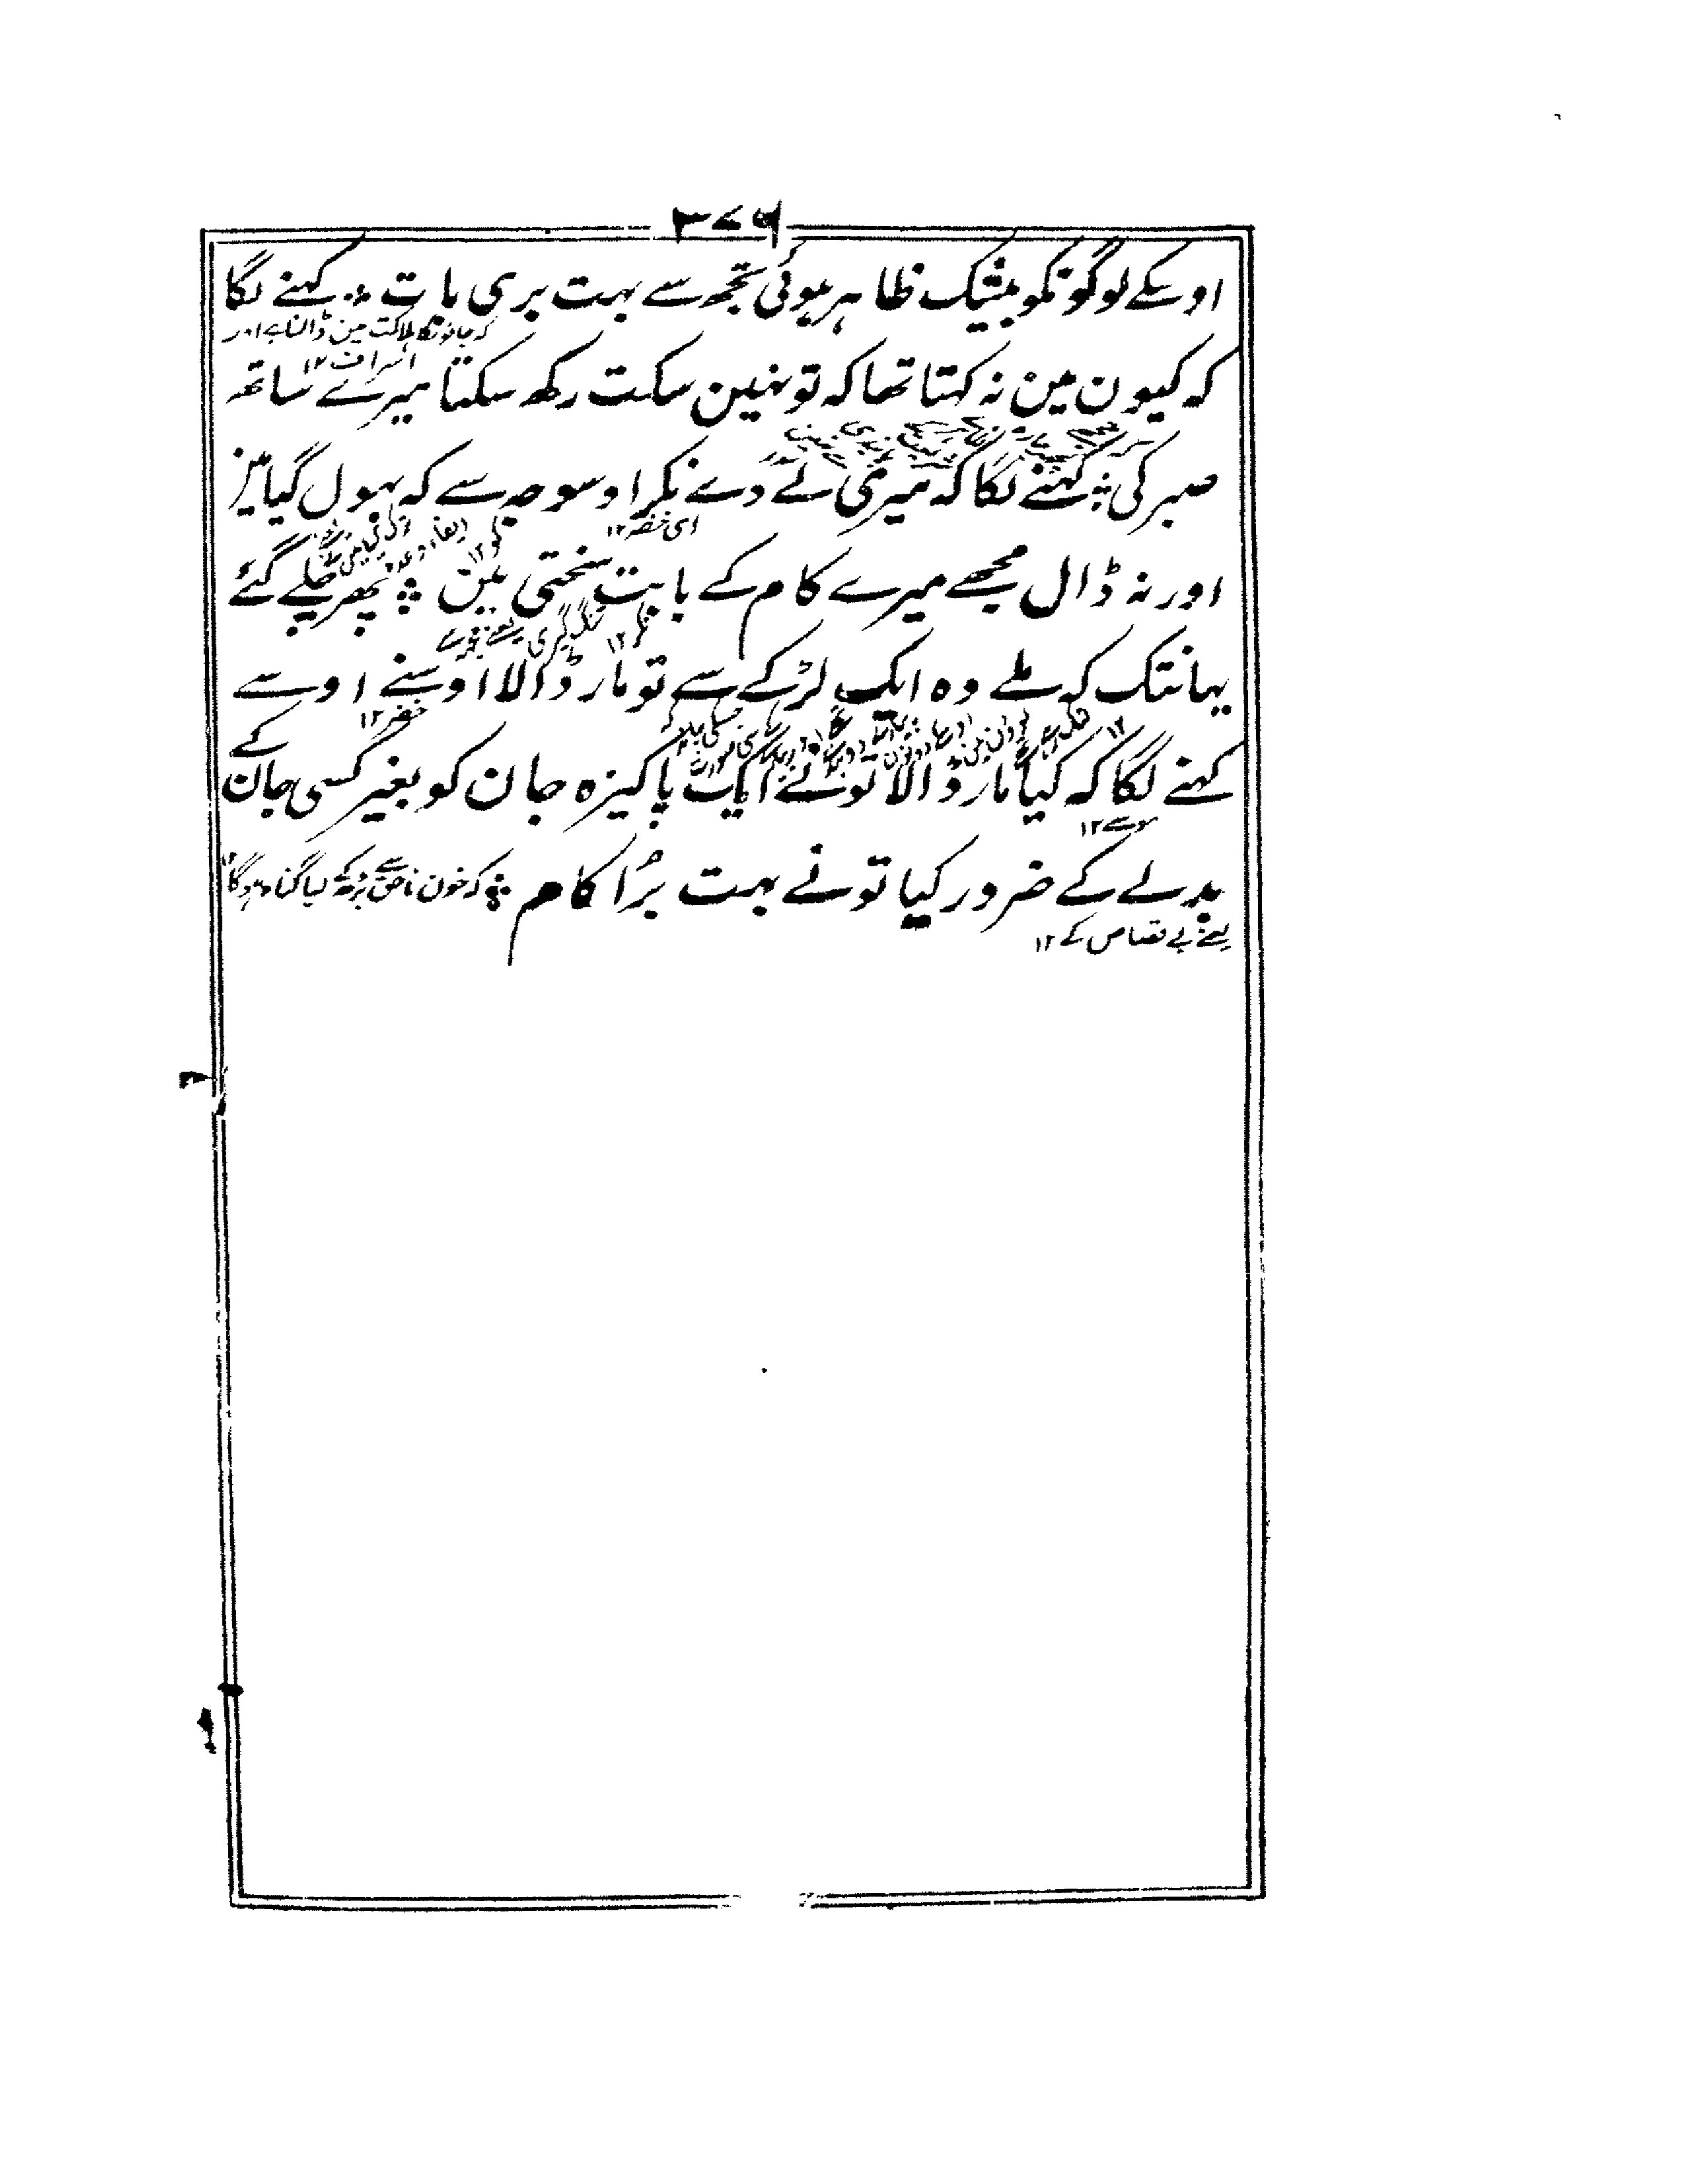 ۳۷۶
اوسکے لوگونکو بیشک ظاہر ہوئی تجھ سے بہت بری بات ؞ کہنے لگا
کہ جانونکا ہلاکت مین ڈالنا ہے اور
اسراف ۱۲
کہ کیون مین نہ کہتا تھا کہ تو نہین سکت رکھ سکتا میرے ساتھ
صبر کی ؞ کہنے لگا کہ میری لے دے نکر اوسوجہ سے کہ بہول گیا مین
ای خضر ۱۲
اور نہ ڈال مجھے میرے کام کے بابت سختی مین ؞ پھر چلے گئے
یہانتک کہ ملے وہ ایک لڑکے سے تو مار ڈالا اوسنے اوسے
خضر ۱۲
کہنے لگا کہ کیا مار ڈالا تونے ایک پاکیزہ جان کو بغیر کسی جان کے
موسے ۱۲
بدلے کے ضرور کیا تونے بہت بُرا کام ؞ کہ خون ناحق سے بڑھ کے کیا گناہ ہوگا ۱۲
یعنے بے قصاص کے ۱۲